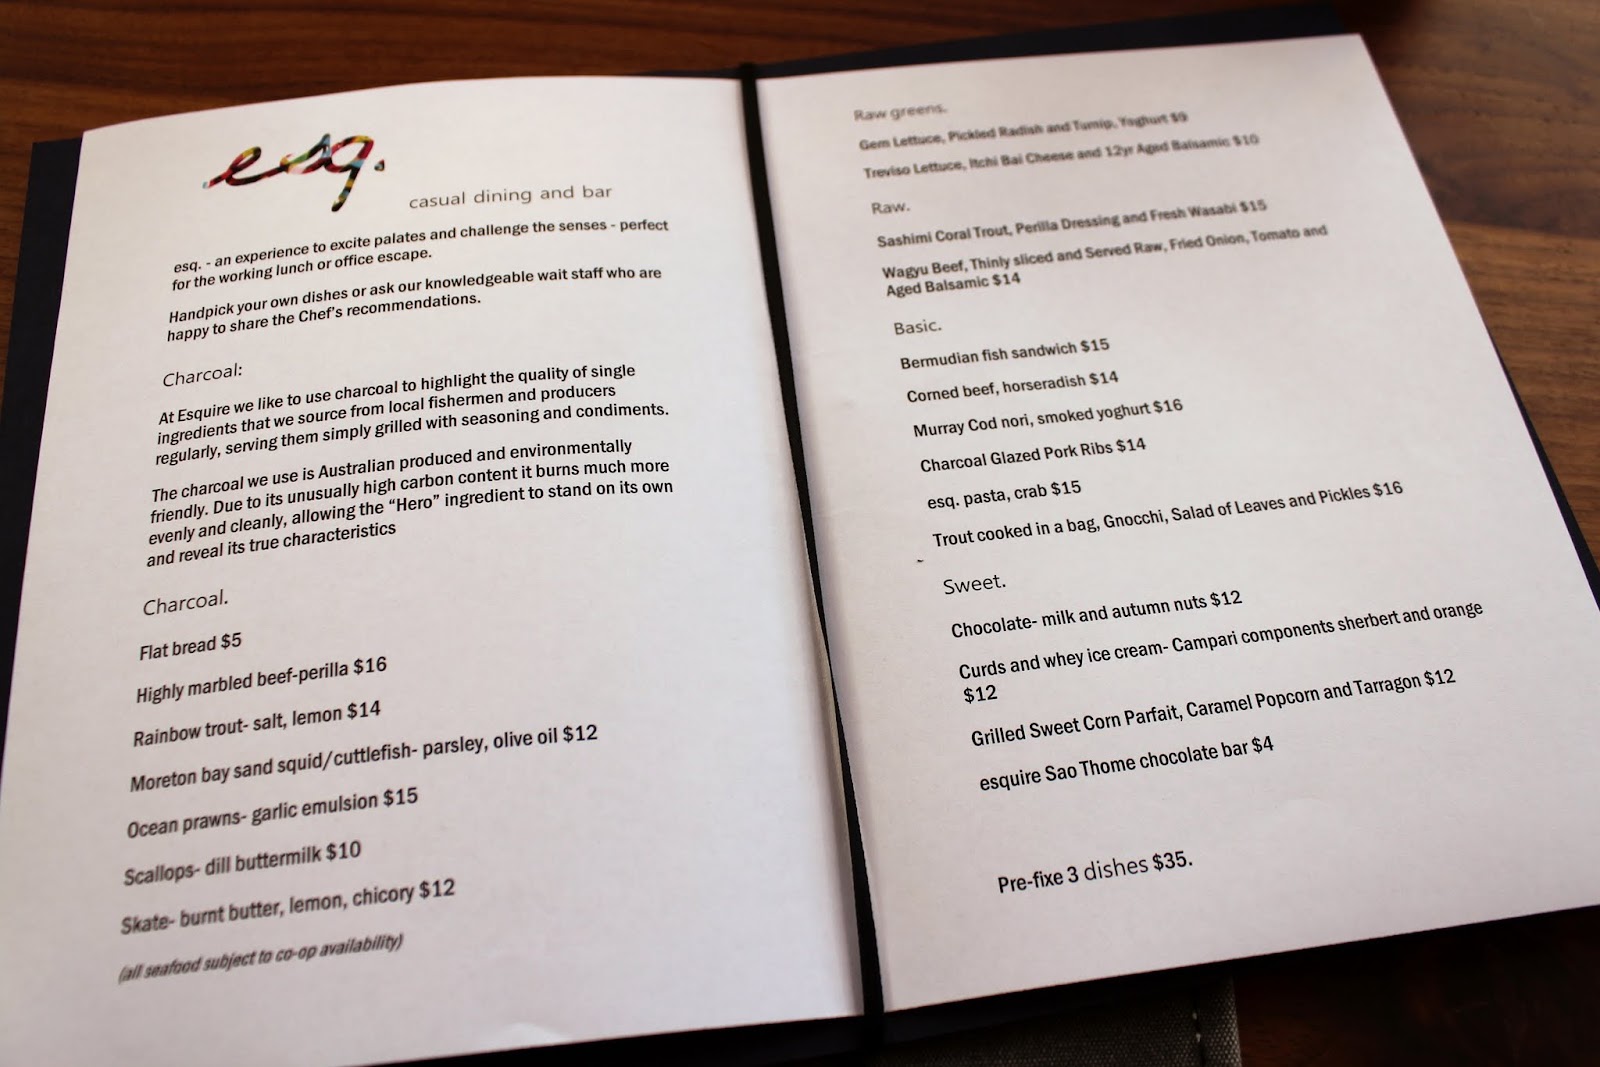 esq.
casual dining and bar
esq. - an experience to excite palates and challenge the senses - perfect
for the working lunch or office escape.
Handpick your own dishes or ask our knowledgeable wait staff who are
happy to share the Chef's recommendations.
Charcoal:
At Esquire we like to use charcoal to highlight the quality of single
ingredients that we source from local fishermen and producers
regularly, serving them simply grilled with seasoning and condiments.
The charcoal we use is Australian produced and environmentally
friendly. Due to its unusually high carbon content it burns much more
evenly and cleanly, allowing the "Hero" ingredient to stand on its own
and reveal its true characteristics
Charcoal.
Flat bread $5
Highly marbled beef-perilla $16
Rainbow trout- salt, lemon $14
Moreton bay sand squid/cuttlefish- parsley, olive oil $12
Ocean prawns- garlic emulsion $15
Scallops- dill buttermilk $10
Skate- burnt butter, lemon, chicory $12
(all seafood subject to co-op availability)
Raw greens.
Gem Lettuce, Pickled Radish and Turnip, Yoghurt $9
Treviso Lettuce, Itchi Bai Cheese and 12yr Aged Balsamic $10
Raw.
Sashimi Coral Trout, Perilla Dressing and Fresh Wasabi $15
Wagyu Beef, Thinly sliced and Served Raw, Fried Onion, Tomato and
Aged Balsamic $14
Basic.
Bermudian fish sandwich $15
Corned beef, horseradish $14
Murray Cod nori, smoked yoghurt $16
Charcoal Glazed Pork Ribs $14
esq. pasta, crab $15
Trout cooked in a bag, Gnocchi, Salad of Leaves and Pickles $16
Sweet.
Chocolate- milk and autumn nuts $12
Curds and whey ice cream- Campari components sherbert and orange
$12
Grilled Sweet Corn Parfait, Caramel Popcorn and Tarragon $12
esquire Sao Thome chocolate bar $4
Pre-fixe 3 dishes $35.